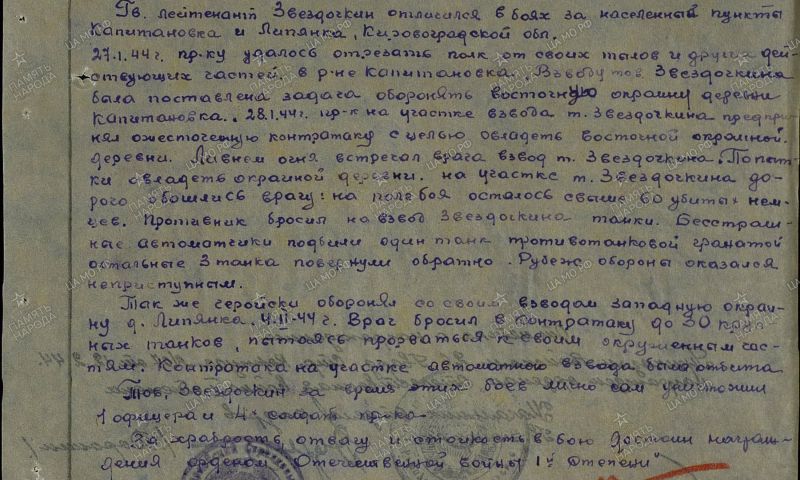 Гв. лейтенант Звездочкин отличился в боях за населенный пункты
Капитановка и Липянка, Кировоградской обл.
27.1.44г. пр-ку удалось отрезать полк от своих тылов и других дей-
ствующих частей в р-не Капитановка. Взводу тов. Звездочкина
была поставлена задача оборонять восточную окраину деревни
Капитановка. 28.1.44г. пр-к на участке взвода т. Звездочкина предпри-
нял ожесточенную контратаку с целью овладеть восточной окраиной
деревни. Ливнем огня встретил врага взвод т. Звездочкина. Попыт-
ки овладеть окраиной деревни на участке т. Звездочкина до-
рого обошлись врагу: на поле боя осталось свыше 60 убитых нем-
цев. Противник бросил на взвод Звездочкина танки. Бесстраш-
ные автоматчики подбили один танк противотанковой гранатой
остальные 3 танка повернули обратно. Рубеж обороны оказался
неприступным.
Так же геройски оборонял со своим взводом западную окраи-
ну д. Липянка, 4.II-44г. Враг бросил в контратаку до 30 круп-
ных танков, пытаясь прорваться к своим окруженным час-
тям. Контратака на участке автоматного взвода была отбита
Тов. Звездочкин за время этих боев лично сам уничтожил
1 офицера и 4 солдат пр-ка.
За храбрость, отвагу и стойкость в бою достоин награж-
дения орденом Отечественной войны 1й Степени"